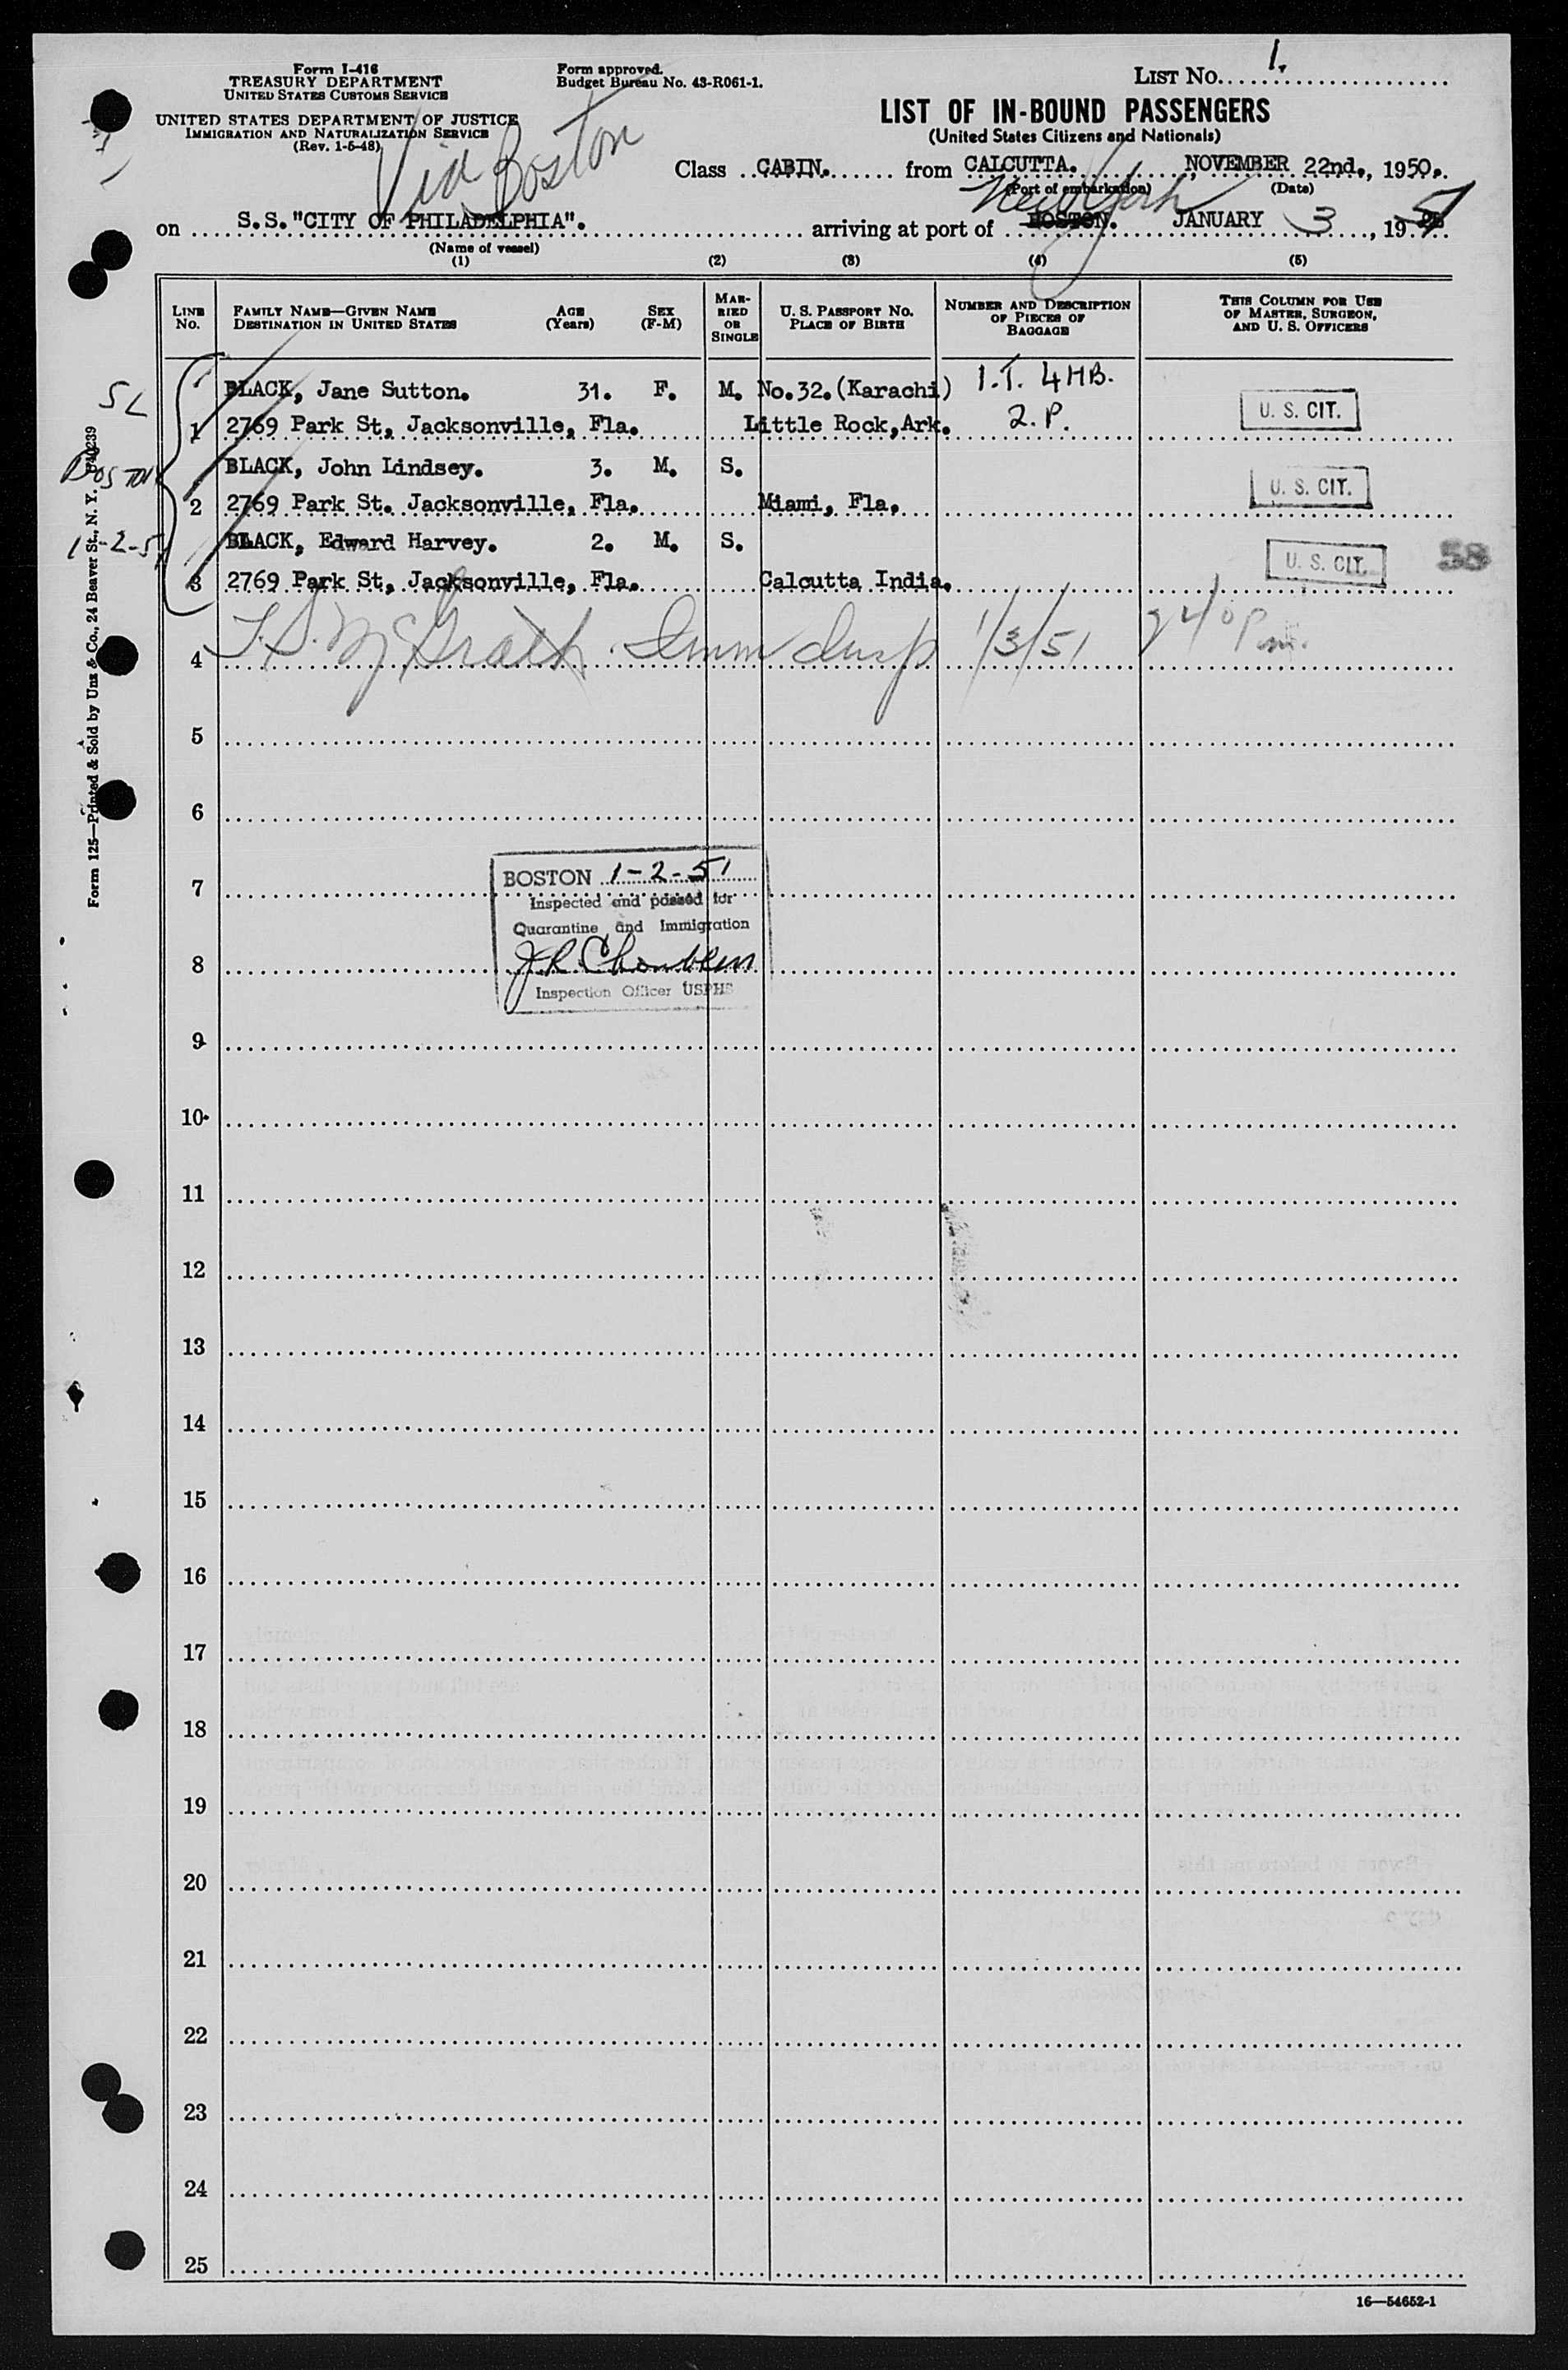 Form I-416
TREASURY DEPARTMENT
UNITED STATES CUSTOMS SERVICE
UNITED STATES DEPARTMENT OF JUSTICE
IMMIGRATION AND NATURALIZATION SERVICE
(Rev. 1-5-48)
Form approved.
Budget Bureau No. 43-R061-1.
Via Boston
LIST No. 1.
LIST OF IN-BOUND PASSENGERS
(United States Citizens and Nationals)
Class CABIN. from CALCUTTA., NOVEMBER 22nd., 1950.
(Port of embarkation) (Date)
New York
on S.S."CITY OF PHILADELPHIA". arriving at port of BOSTON. JANUARY 3, 1951
(Name of vessel)
(1) (2) (3) (4) (5)
LINE No. FAMILY NAME—GIVEN NAME DESTINATION IN UNITED STATES AGE (Years) SEX (F-M) MARRIED OR SINGLE U. S. PASSPORT NO. PLACE OF BIRTH NUMBER AND DESCRIPTION OF PIECES OF BAGGAGE THIS COLUMN FOR USE OF MASTER, SURGEON, AND U. S. OFFICERS
BLACK, Jane Sutton. 31. F. M. No.32.(Karachi) 1.T. 4HB.
1 2769 Park St, Jacksonville, Fla. Little Rock,Ark. 2.P. U. S. CIT.
BLACK, John Lindsey. 3. M. S.
2 2769 Park St. Jacksonville, Fla. Miami, Fla, U. S. CIT.
BLACK, Edward Harvey. 2. M. S.
3 2769 Park St, Jacksonville, Fla. Calcutta India. U. S. CIT. 58
SL
BOSTON
1-2-51
4 T. S. McGrath. Imm Insp 1/3/51 240 Pm.
5
6
7
BOSTON 1-2-51
Inspected and passed for
Quarantine and Immigration
8
Inspection Officer USPHS
9
10
11
12
13
14
15
16
17
18
19
20
21
22
23
24
25
Form 125—Printed & Sold by Unz & Co., 24 Beaver St., N. Y.
16—54652-1